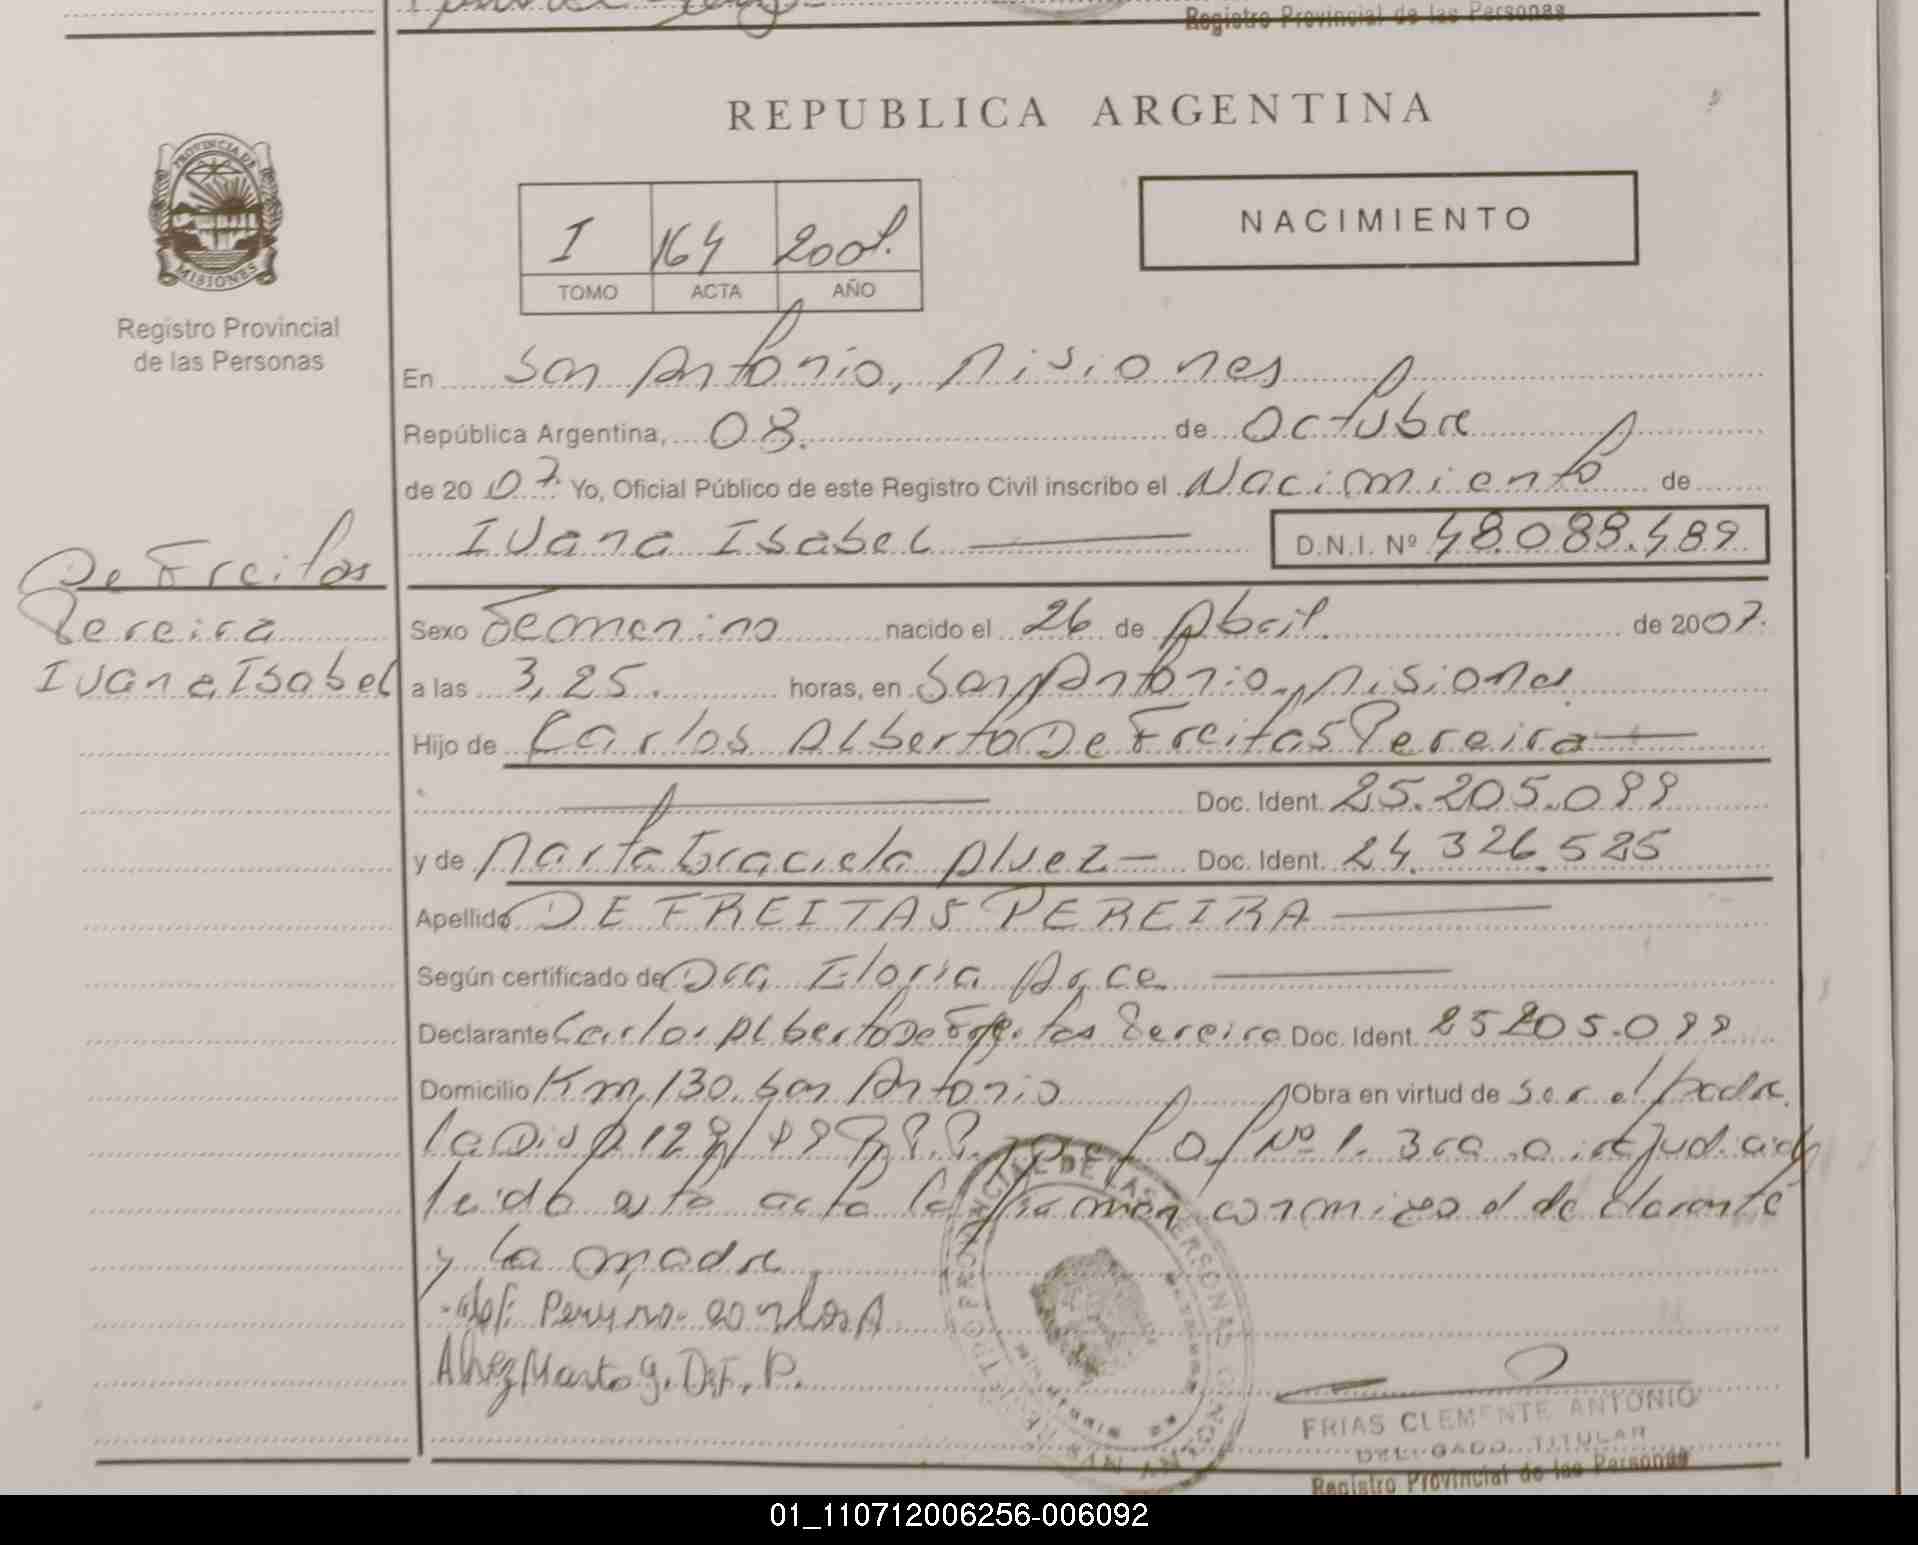 Registro Provincial de las Personas
REPUBLICA ARGENTINA
PROVINCIA DE
MISIONES
Registro Provincial
de las Personas
I 164 2007.
TOMO ACTA AÑO
NACIMIENTO
En San Antonio, Misiones
República Argentina, 08. de Octubre
de 20 07 Yo, Oficial Público de este Registro Civil inscribo el Nacimiento de
Ivana Isabel D.N.I. Nº 48.088.489
De Freitas
Pereira
Ivana Isabel
Sexo Femenino nacido el 26 de Abril. de 2007.
a las 3,25. horas, en San Antonio, Misiones
Hijo de Carlos Alberto De Freitas Pereira
Doc. Ident. 25.205.099
y de Marta Graciela Alvez Doc. Ident. 24.326.525
Apellido DE FREITAS PEREIRA
Según certificado de Dra Gloria Arce
Declarante Carlos Alberto De Freitas Pereira Doc. Ident. 25205.099
Domicilio Km, 130. San Antonio Obra en virtud de ser el padre.
la Disp 128/ Nº 1.
leido esta acta la firman conmigo el declarante
y la madre
Pereira Carlos A
Alvez Marta G. D.F. P.
FRIAS CLEMENTE ANTONIO
DELEGADO TITULAR
Registro Provincial de las Personas
01_110712006256-006092